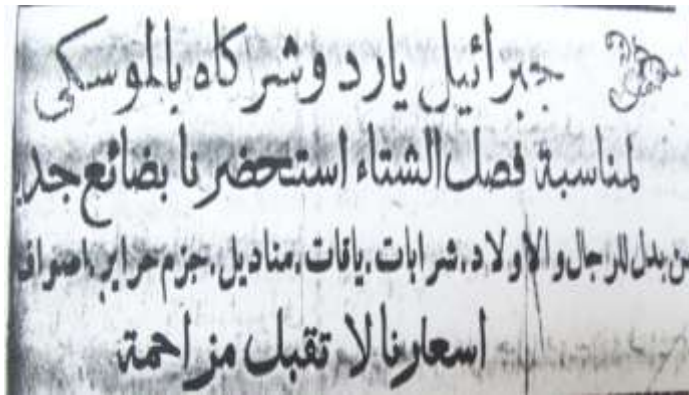 جبرائيل يارد وشركاه بالموسكي
لمناسبة فصل الشتاء استحضرنا بضائع جد
من بدل للرجال والاولاد. شرابات. ياقات. مناديل. جزم حراير. اصواف
اسعارنا لا تقبل مزاحمة